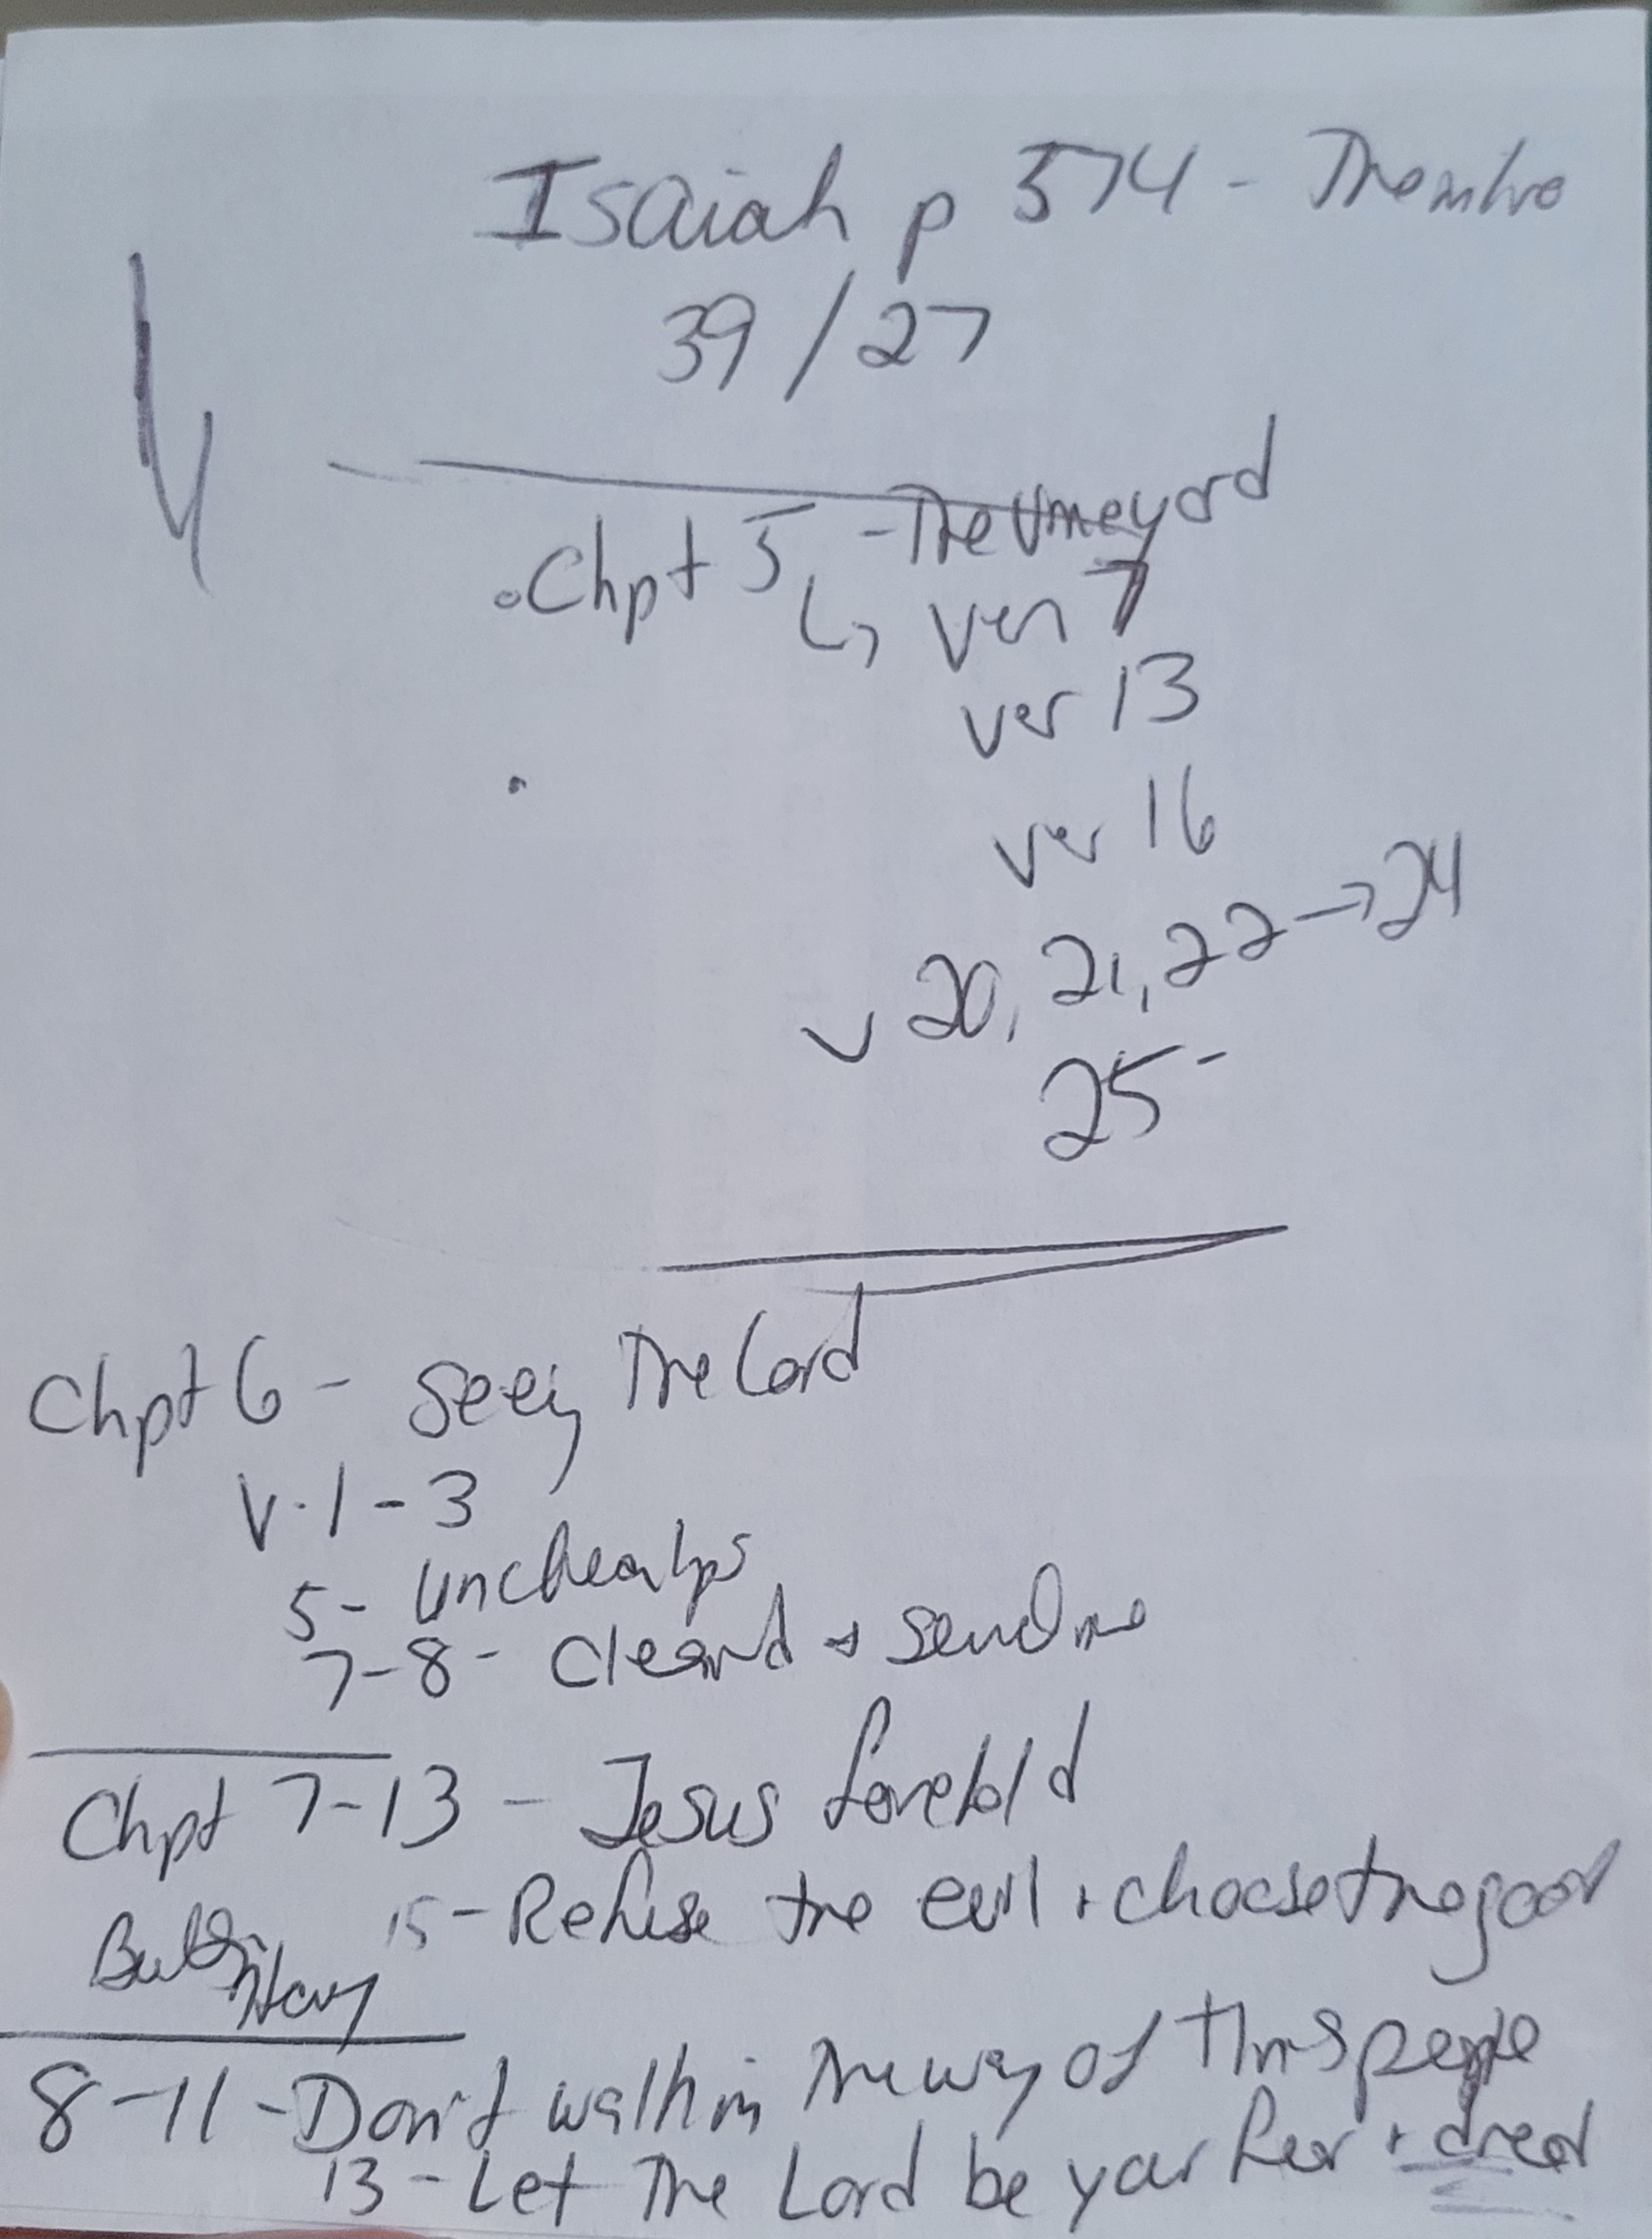 Isaiah p 574 -
39/27
Chpt 5 - The Vineyard
↳ ver 7
ver 13
ver 16
v 20, 21, 22 → 24
25 -
Chpt 6 - Seeing The Lord
V. 1 - 3
5 - Unclean lips
7-8 - Cleansed + send me
Chpt 7-13 - Jesus foretold
15 - Refuse the evil + choose the good
8-11 - Don't walk in the way of this people
13 - Let The Lord be your fear + dread